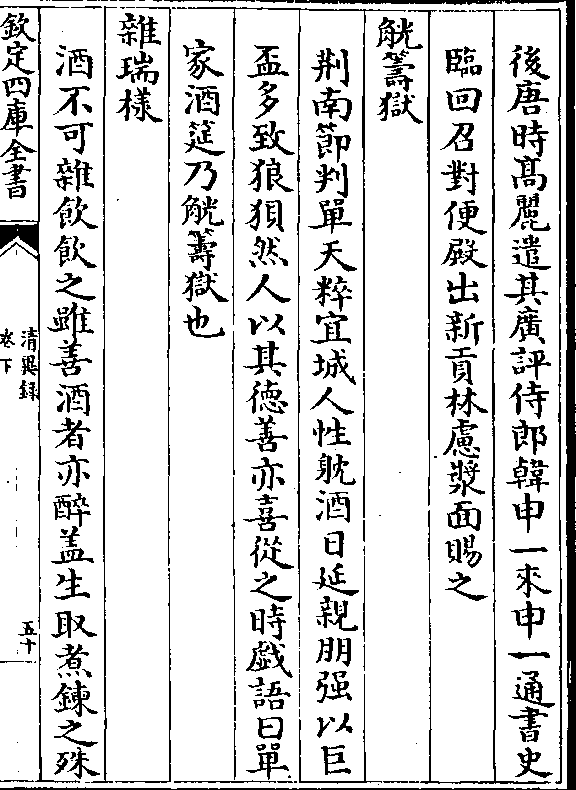 後唐時髙麗遣其廣評侍郎韓申一來申一通書史
臨回召對便殿出新貢林慮漿面賜之
觥籌獄
荆南節判單天粹宜城人性躭酒日延親朋强以巨
盃多致狼狽然人以其徳善亦喜從之時戯語曰單
家酒筵乃觥籌獄也
雜瑞様
酒不可雜飲飲之雖善酒者亦醉盖生取煮鍊之殊
欽定四庫全書
清異録
卷下
五十